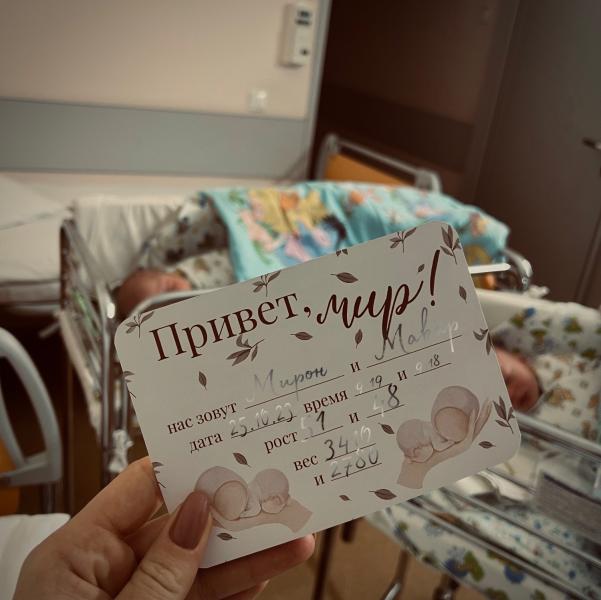 Привет, мир!
нас зовут Мирон и Макар
дата 25.10.23 время 9.19 и 9.18
рост 51 и 48
вес 3410
и 2780